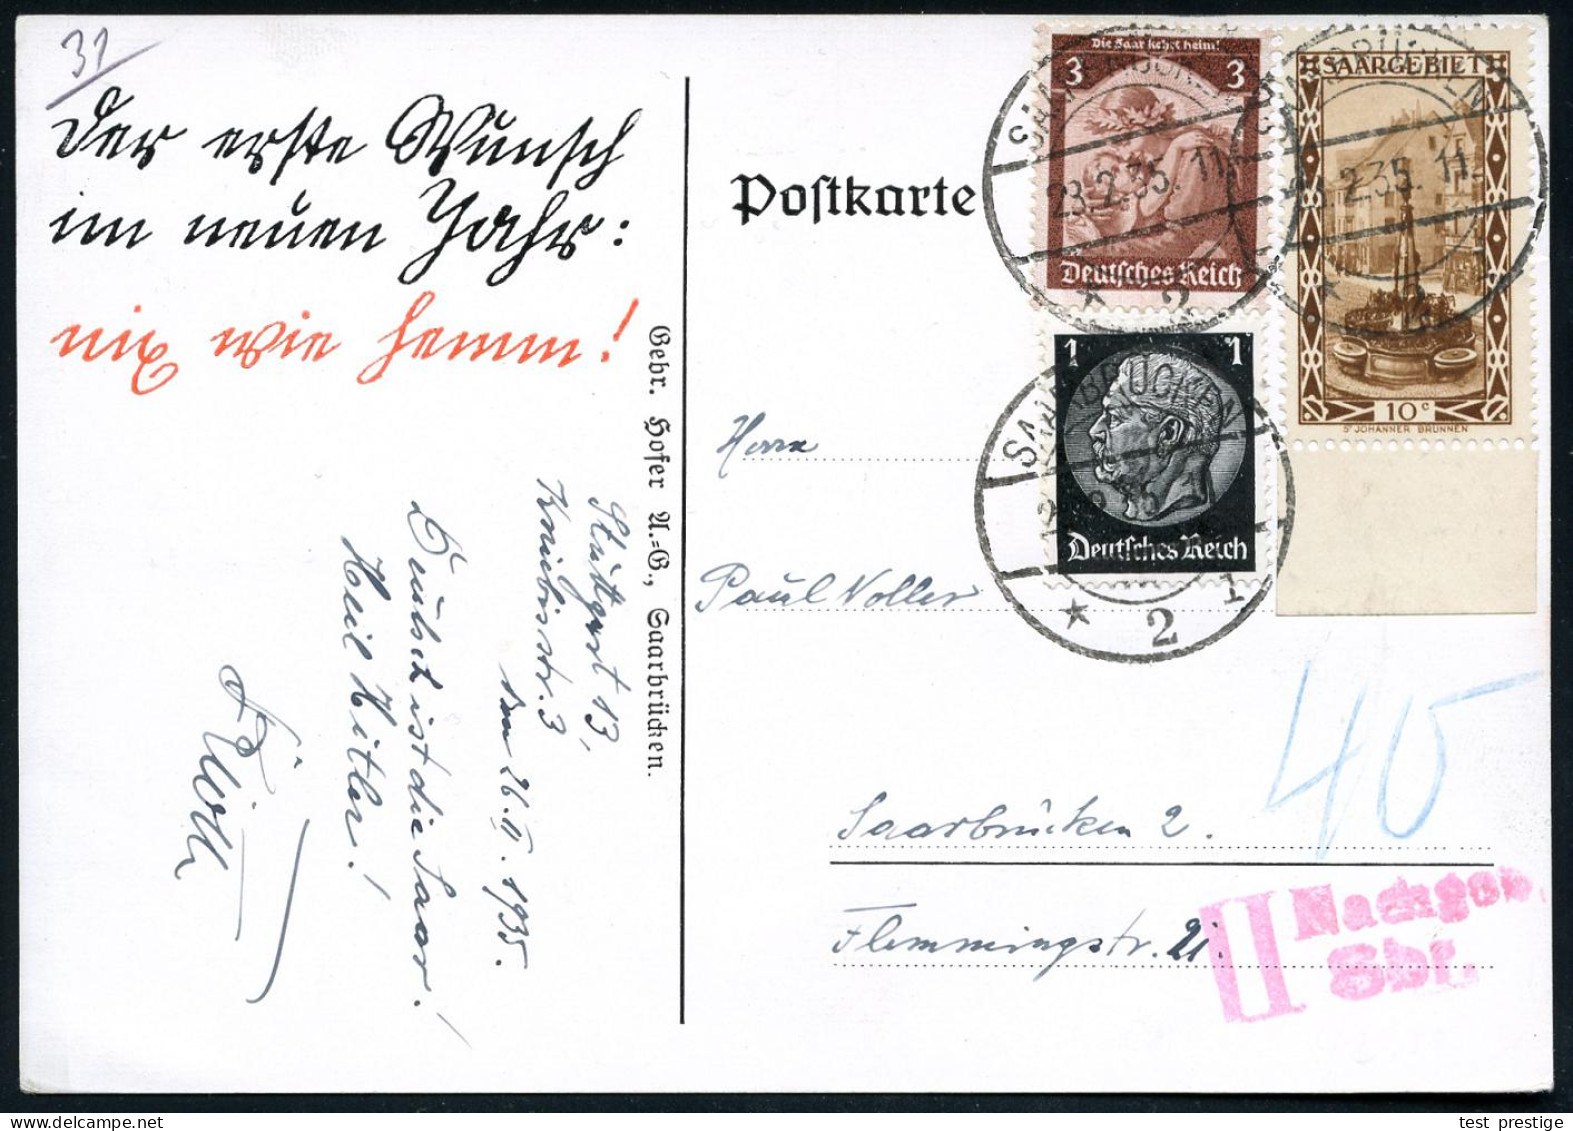 31
Der erste Wunsch
im neuen Jahr:
nix wie hemm!
Stuttgart 13,
Kniebisstr. 3
den 26.II.1935.
Deutsch ist die Saar!
Heil Hitler!
Gebr. Hofer A.=G., Saarbrücken.
Postkarte
Die Saar kehrt heim!
3 3
Deutsches Reich
SAARGEBIET
10 c
ST JOHANNER BRUNNEN
1 1
Deutsches Reich
SAARBRÜCKEN
23.2.35. 11
* 2
SAARBRÜCKEN
2.35. 11
* 2
SAARBRÜCKEN
* 2 1
Herrn
Paul Voller
40
Saarbrücken 2.
Flemmingstr. 21.
II Nachgeb.
Sbr.
test prestige